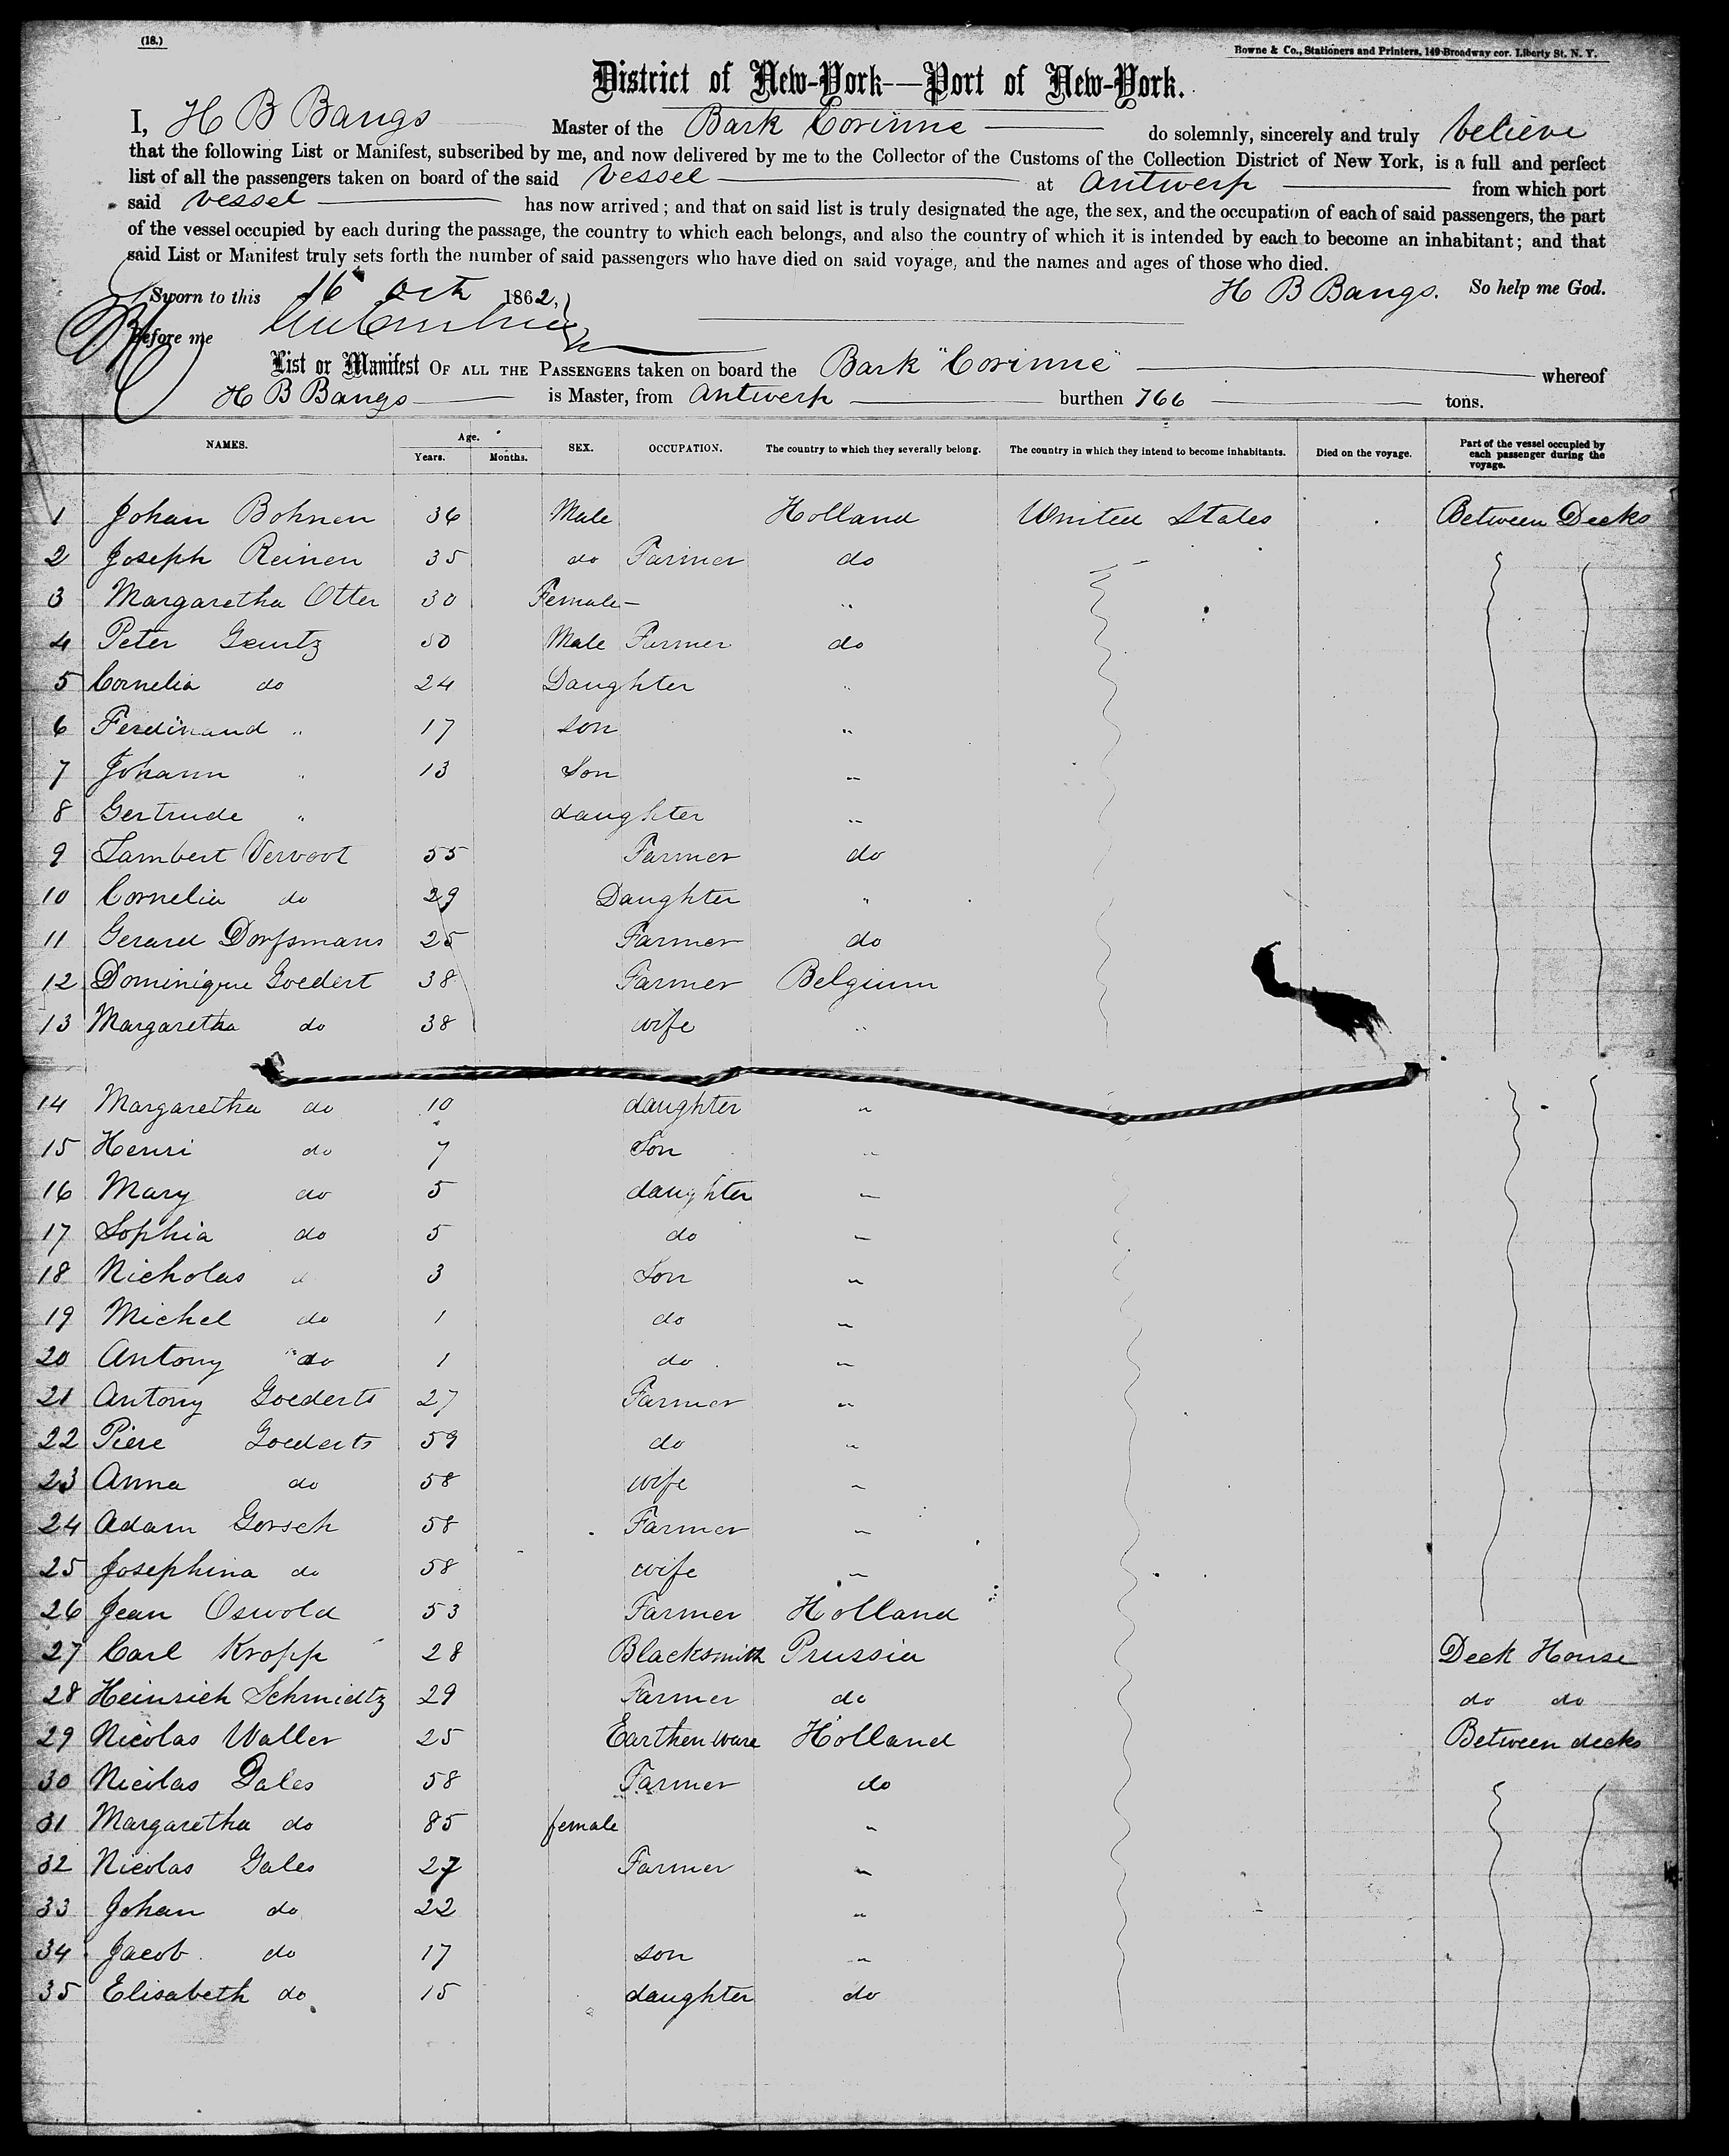 (18.)
Bowne & Co., Stationers and Printers, 149 Broadway cor. Liberty St. N. Y.
District of New-York—Port of New-York.
I, H B Bangs Master of the Bark Corinne do solemnly, sincerely and truly believe
that the following List or Manifest, subscribed by me, and now delivered by me to the Collector of the Customs of the Collection District of New York, is a full and perfect
list of all the passengers taken on board of the said vessel at Antwerp from which port
said vessel has now arrived; and that on said list is truly designated the age, the sex, and the occupation of each of said passengers, the part
of the vessel occupied by each during the passage, the country to which each belongs, and also the country of which it is intended by each to become an inhabitant; and that
said List or Manifest truly sets forth the number of said passengers who have died on said voyage, and the names and ages of those who died.
Sworn to this 16 Oct 1862, H B Bangs. So help me God.
Before me
List or Manifest OF ALL THE PASSENGERS taken on board the Bark "Corinne" whereof
H B Bangs is Master, from Antwerp burthen 766 tons.
NAMES. Age. Years. Months. SEX. OCCUPATION. The country to which they severally belong. The country in which they intend to become inhabitants. Died on the voyage. Part of the vessel occupied by each passenger during the voyage.
1 Johan Bohnen 36 Male Holland United States Between Decks
2 Joseph Reinen 35 do Farmer do
3 Margaretha Otter 30 Female — "
4 Peter Geurtz 50 Male Farmer do
5 Cornelia do 24 Daughter "
6 Ferdinand " 17 son "
7 Johann " 13 Son "
8 Gertrude " daughter "
9 Lambert Vervoot 55 Farmer do
10 Cornelia do 29 Daughter "
11 Gerard Dorfsmans 25 Farmer do
12 Dominique Goedert 38 Farmer Belgium
13 Margaretha do 38 wife "
14 Margaretha do 10 daughter "
15 Henri do 7 Son "
16 Mary do 5 daughter "
17 Sophia do 5 do "
18 Nicholas d 3 Son "
19 Michel do 1 do "
20 Antony do 1 do "
21 Antony Goederts 27 Farmer "
22 Piere Goederts 59 do "
23 Anna do 58 wife "
24 Adam Gorsch 58 Farmer "
25 Josephina do 58 wife "
26 Jean Oswold 53 Farmer Holland
27 Carl Kropp 28 Blacksmith Prussia Deck House
28 Heinrich Schmidtz 29 Farmer do do do
29 Nicolas Waller 25 Earthenware Holland Between decks
30 Nicolas Gales 58 Farmer do
31 Margaretha do 85 female "
32 Nicolas Gales 27 Farmer "
33 Johan do 22 "
34 Jacob do 17 son "
35 Elisabeth do 15 daughter do